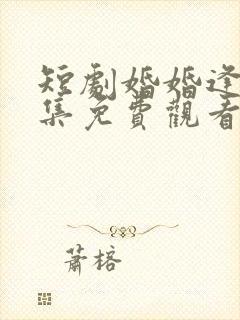 短劇婚婚逢
集免費觀看
蕭榕